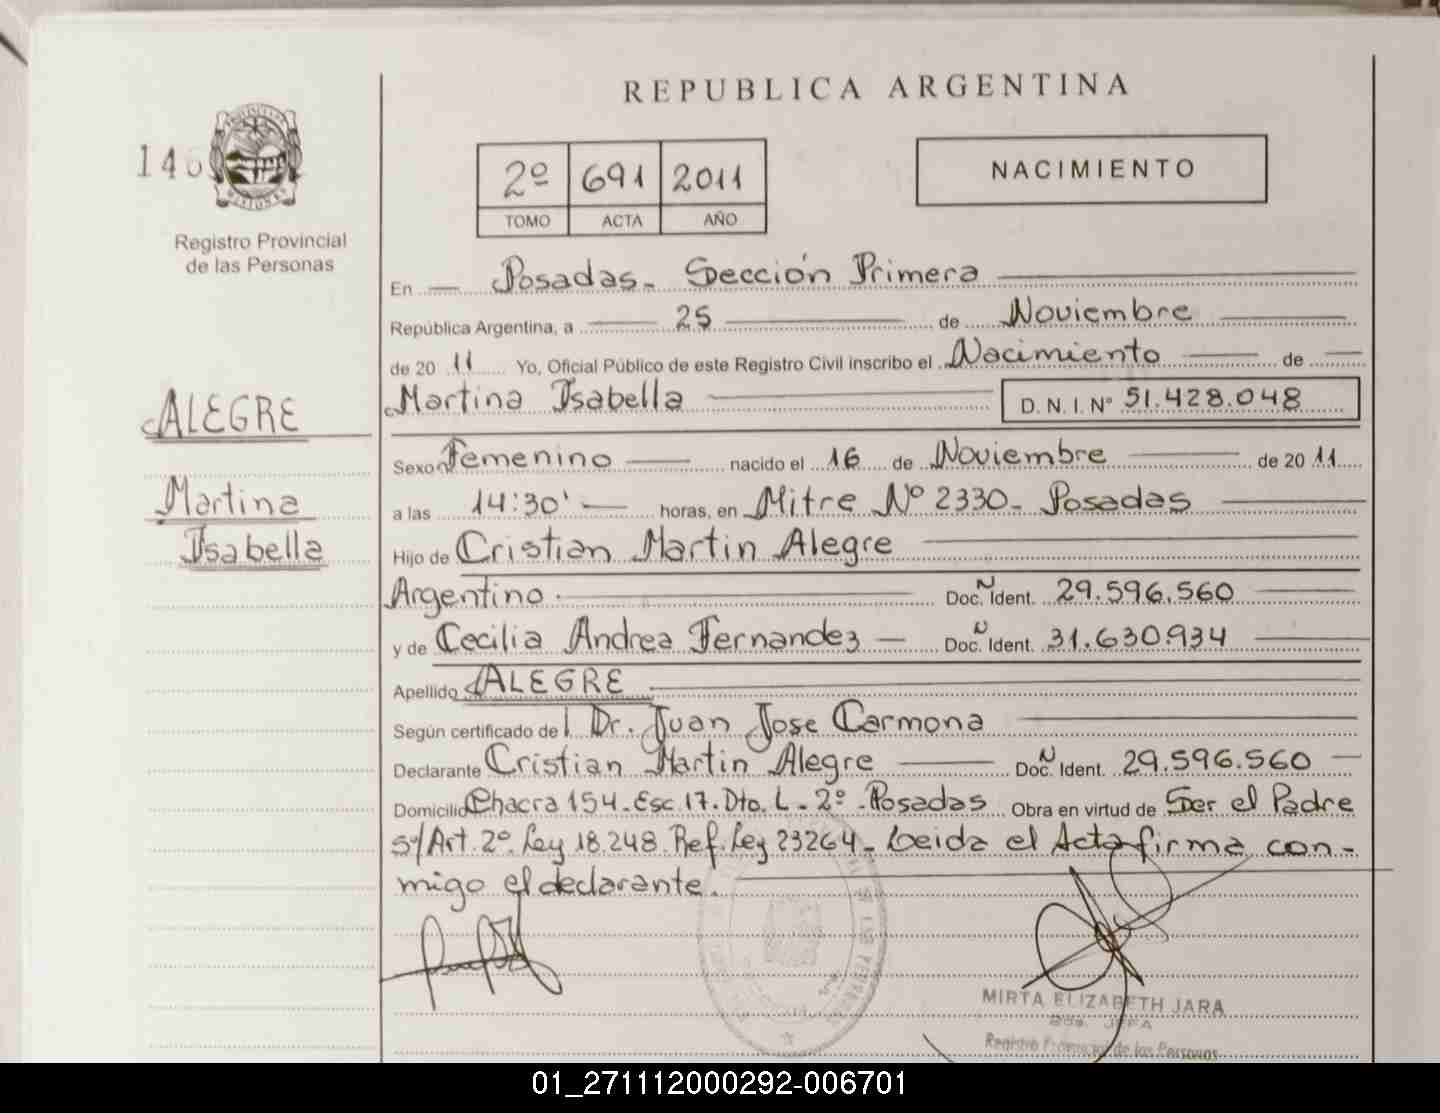 REPUBLICA ARGENTINA
146
Registro Provincial
de las Personas
2º 691 2011
TOMO ACTA AÑO
NACIMIENTO
En Posadas - Sección Primera
República Argentina, a 25 de Noviembre
de 20 11 Yo, Oficial Público de este Registro Civil inscribo el Nacimiento de
Martina Isabella D. N. I. Nº 51.428.048
ALEGRE
Martina
Isabella
Sexo Femenino nacido el 16 de Noviembre de 20 11
a las 14:30' horas, en Mitre Nº 2330 - Posadas
Hijo de Cristian Martin Alegre
Argentino Doc. N Ident. 29.596.560
y de Cecilia Andrea Fernandez Doc. N Ident. 31.630.934
Apellido ALEGRE
Según certificado del Dr. Juan Jose Carmona
Declarante Cristian Martin Alegre Doc. N Ident. 29.596.560
Domicilio Chacra 154 - Esc. 17. Dto. L - 2º - Posadas Obra en virtud de Ser el Padre
s/Art. 2º Ley 18.248. Ref. Ley 23264 - Leida el Acta firma con-
migo el declarante.
MIRTA ELIZABETH JARA
JEFA
Registro Provincial de las Personas
01_271112000292-006701